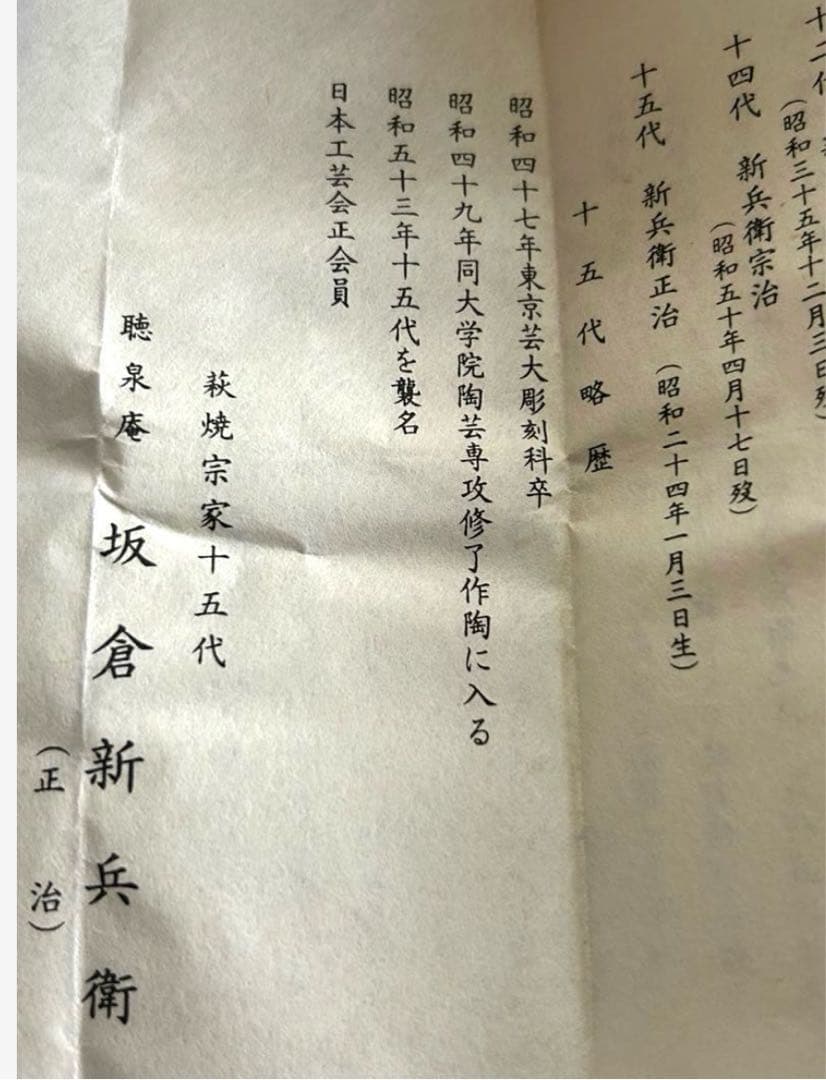 (昭和三十五年十二月三日歿)
十四代 新兵衛宗治
(昭和五十年四月十七日歿)
十五代 新兵衛正治 (昭和二十四年一月三日生)
十五代略歴
昭和四十七年東京芸大彫刻科卒
昭和四十九年同大学院陶芸専攻修了作陶に入る
昭和五十三年十五代を襲名
日本工芸会正会員
萩焼宗家十五代
聴泉庵 坂倉新兵衛
(正治)